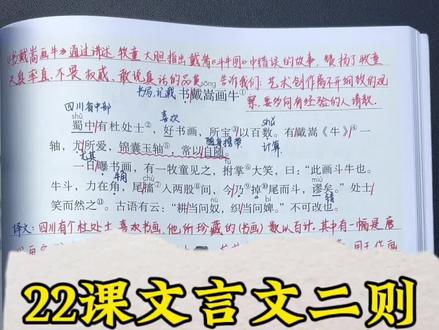 《书戴嵩画牛》通过讲述牧童大胆指出戴嵩《斗牛图》中错误的故事,赞扬了牧童
天真率直、不畏权威、敢说真话的品质。告诉我们:艺术创作离不开细致的观
察,要多向有经验的人请教。
书写,记载
书戴嵩画牛①
四川省中部
喜欢
shǔ
shǔ
蜀中有杜处士②,好书画,所宝③以百数。有戴嵩《牛》④一
尤其
随身携带
计算
轴,尤所爱,锦囊玉轴⑤,常以自随。
一日曝书画,有一牧童见之,拊掌⑦大笑,曰:“此画斗牛也。
牛斗,力在角,尾搐⑧入两股⑨间,今乃掉⑩尾而斗,谬矣。”处士
错
笑而然之。古语有云:“耕当问奴,织当问婢。”不可改也。
译文:四川省有个杜处士喜欢书画,他所珍藏的(书画)数以百计,其中有一幅是唐
22课文言文二则